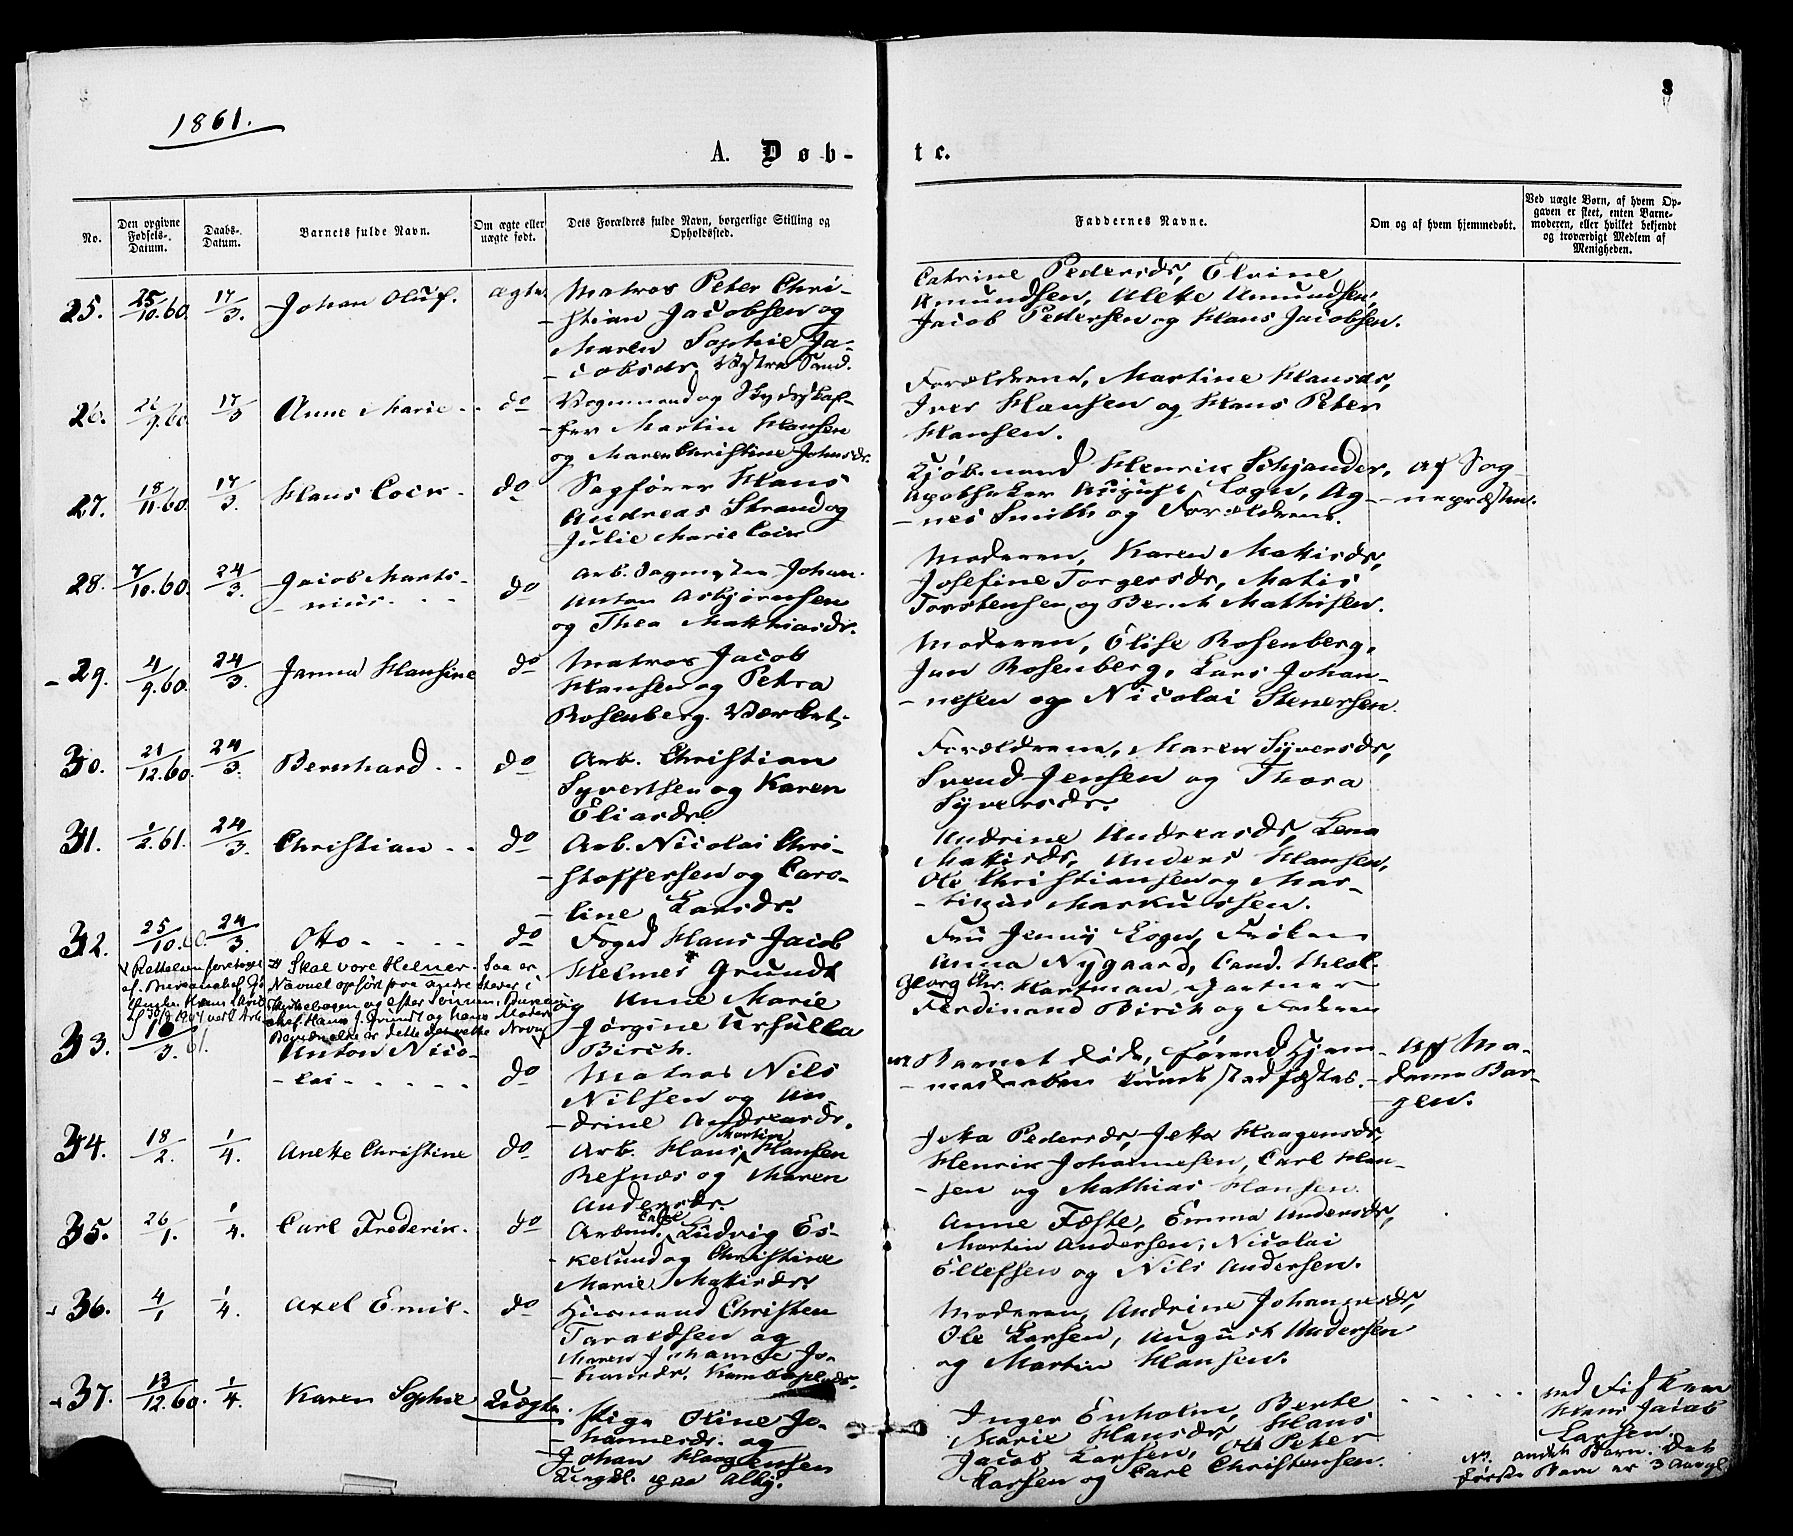 8
1861.
A. Døb-
te.
No.
Den opgivne Fødsels-Datum.
Daabs-Datum.
Barnets fulde Navn.
Om ægte eller uægte født.
Dets Forældres fulde Navn, borgerlige Stilling og Opholdssted.
Faddernes Navne.
Om og af hvem hjemmedøbt.
Ved uægte Børn, af hvem Opgaven er skeet, enten Barnemoderen, eller hvilket bekjendt og troværdigt Medlem af Menigheden.
25. 25/10.60. 17/3. Johan Oluf. ægte
Matros Peter Chri-
stian Jacobsen og
Maren Sophie Ja-
cobsdr, Vestre Sand.
Catrine Pedersdr, Elvine
Amundsen, Alette Amundsen,
Jacob Pedersen og Hans Jacobsen.
26. 26/9.60 17/3 Anne Marie do
Vognmand og Skydsskaf-
fer Martin Hansen
og Maren Christine Johnsdr.
Forældrene, Martine Hansdr,
Iver Hansen og Hans Peter
Hansen.
27. 18/11.60. 17/3. Hans Cock. do
Sagfører Hans
Andreas Strand og
Julie Marie Cock
Kjøbmand Henrik Schjander,
Apotheker August Logn, Ag-
nes Smith og Forældrene.
Af Sog-
nepræsten.
28. 7/10.60. 24/3. Jacob Marti-
nius. do
Arb. Johan
Anton Asbjørnsen
og Thea Mathiasdr.
Moderen, Karen Mathisdr,
Josefine Torgersdr, Matis
Torstensen og Berent Mathisen.
29. 4/9.60. 24/3. Janna Hansine do
Matros Jacob
Hansen og Petra
Rosenberg. Værket.
Moderen, Elise Rosenberg,
Jan Rosenberg, Lars Johan-
nesen og Nicolai Stenersen.
30. 21/12.60. 24/3. Bernhard do
Arb. Christian
Syvertsen og Karen
Eliasdr.
Forældrene, Maren Syversdr,
Svend Jensen og Thora
Syversdr.
31. 1/2.61. 24/3. Christian do
Arb. Nicolai Chri-
stoffersen og Caro-
line Larsdr.
Andrine Andreasdr, Lena
Mathisdr, Anders Hansen,
Ole Christiansen og Mar-
tinius Markussen.
32. 25/10.60. 24/3. Otto do
Foged Hans Jacob
Helmer* Grundt
og Anne Marie
Jørgine Ursulla
Birch.
Fru Jenny Logn, Frøken
Anna Nygaard, Cand. theol.
Georg Chr. Hartman, Gartner
Ferdinand Birch og Faderen
Rettelsen foretaget
Skal være Helmer. Saa er
Navnet opført paa andre steder i
Kirkebogen og efter Sønnen, Bureau-
chef Hans J. Grundt og hans Moders
Bevidnelse er dette det rette Navn
33. 10/3.61. Anton Nico-
lai do
Matros Nils
Nilsen og An-
drine Andreasdr.
NB. Barnet døde, førend Hjem-
medaaben kunde stadfæstes.
Af Ma-
dame Bør-
gen.
34. 18/2. 1/4. Anette Christine do
Arb. Hans Martin Hansen
Refnæs og Maren
Andersdr.
Jetta Pedersdr, Jetta Haagensdr,
Henrik Johannesen, Carl Han-
sen og Mathias Hansen.
35. 26/1. 1/4. Carl Frederik. do
Arbmd. Ludvig Es-
kelund og Christine
Marie Mathisdr.
Anne Fæste, Emma Andersdr,
Martin Andersen, Nicolai
Ellefsen og Nils Andersen.
36. 4/1 1/4. Axel Emil. do
Husmand Christen
Taraldsen og
Maren Johanne Jo-
hansdr.
Moderen, Andrine Johannesdr,
Ole Larsen, August Andersen
og Martin Hansen.
37. 13/12.60. 1/4. Karen Sophie Uægte.
Pige Oline Jo-
hannesdr. og
Johan Haagensen
Ungkl. paa Alby.
Inger Enholm, Berte
Marie Hansdr, Hans
Jacob Larsen, Ole Peter
Larsen og Carl Christensen.
ved Fisker
Hans Jacob
Larsen.
andet Barn. Det
første Barn er 3 Aar gl.